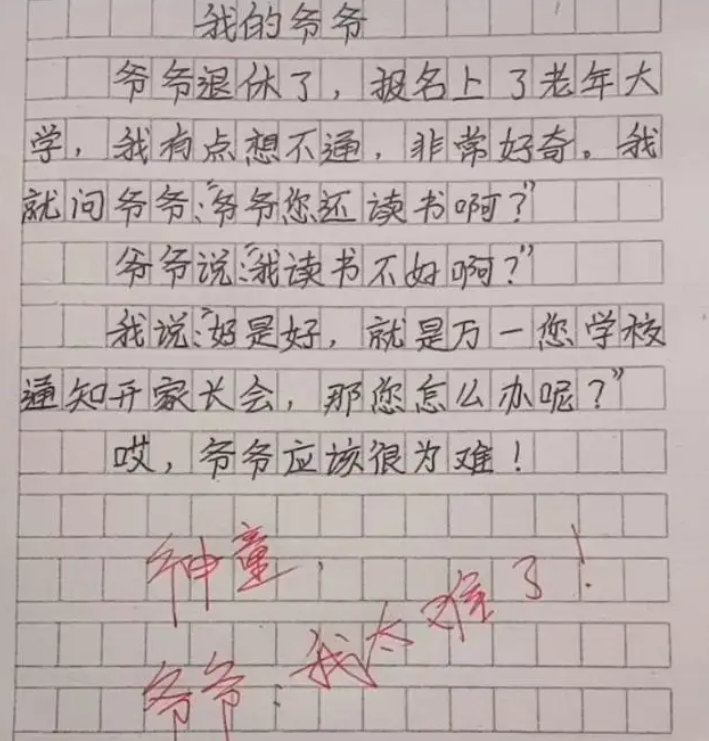 我的爷爷
爷爷退休了，报名上了老年大
学，我有点想不通，非常好奇。我
就问爷爷：“爷爷您还读书啊？”
爷爷说：“我读书不好啊？”
我说：“好是好，就是万一您学校
通知开家长会，那您怎么办呢？”
哎，爷爷应该很为难！
神童，
爷爷：我太难了！